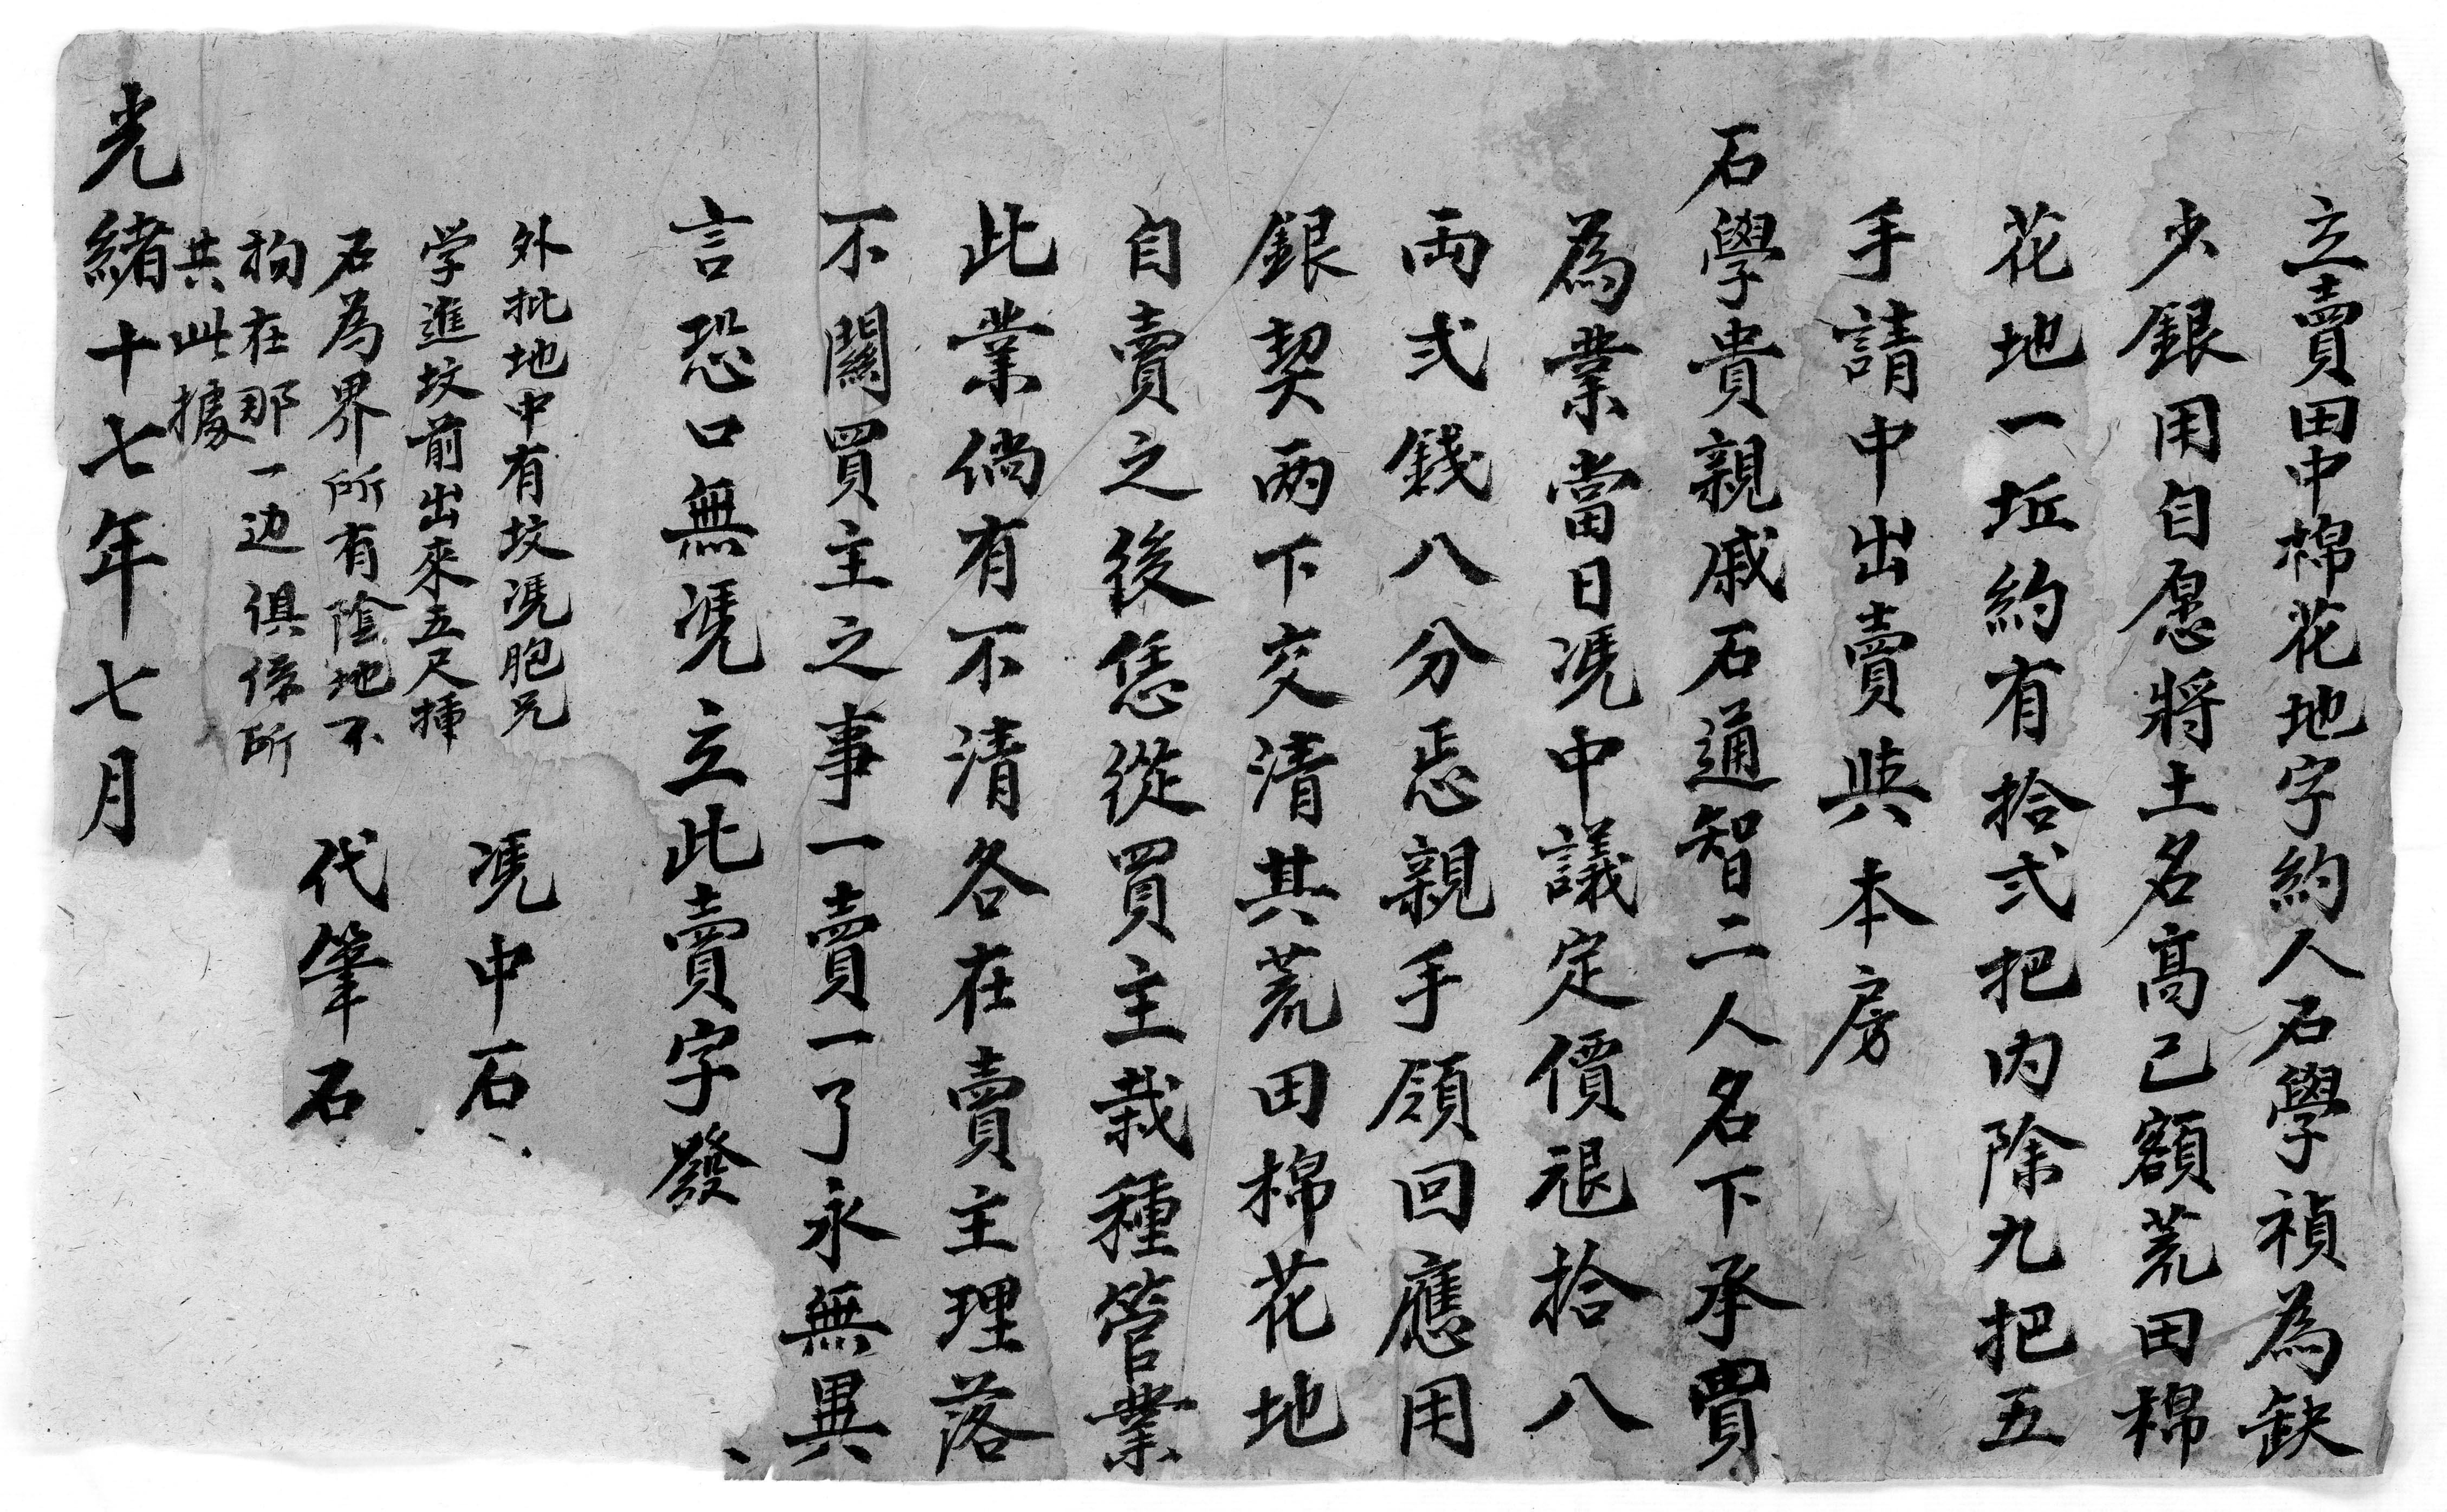 立賣田中棉花地字約人石學禎為缺
少銀用自愿將土名高己額荒田棉
花地一坵約有拾弍把内除九把五
手請中出賣與本房
石學貴親戚石通智二人名下承買
為業當日凴中議定價艮拾八
両弍錢八分悉親手領回應用
銀契兩下交清其荒田棉花地
自賣之後恁從買主栽種管業
此業倘有不清各在賣主理落
不關買主之事一賣一了永無異
言恐口無凴立此賣字發
外批地中有坟凴胞兄
学進坟前出來五尺揷
石為界所有陰地不
拘在那一边俱係所
共此據
凴中石
代筆石
光緒十七年七月